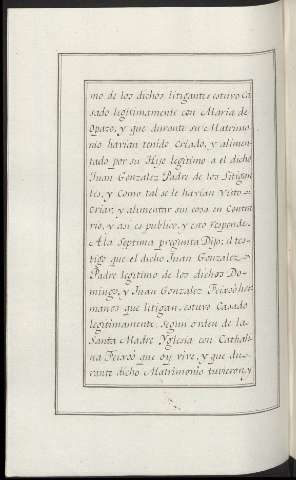 mo de los dichos litigantes estuvo Ca
sado legitimamente con Maria de
Opazo, y que durante su Matrimo
nio havian tenido, criado, y alimen-
tado por su Hijo legitimo a el dicho
Juan Gonzalez Padre de los Litigan
tes, y Como tal se le havian Visto
Criar, y alimentar sin cosa en Contra
rio, y asi es publico, y esto responde
A la Septima pregunta Dijo; el tes-
tigo que el dicho Juan Gonzalez
Padre legitimo de los dichos Do-
mingo, y Juan Gonzalez Feixoó her
manos que litigan, estuvo Casado
legitimamente, segun orden de la
Santa Madre Yglesia con Cathali
na Feixoó que oy vive, y que du-
rante dicho Matrimonio tuvieron, y